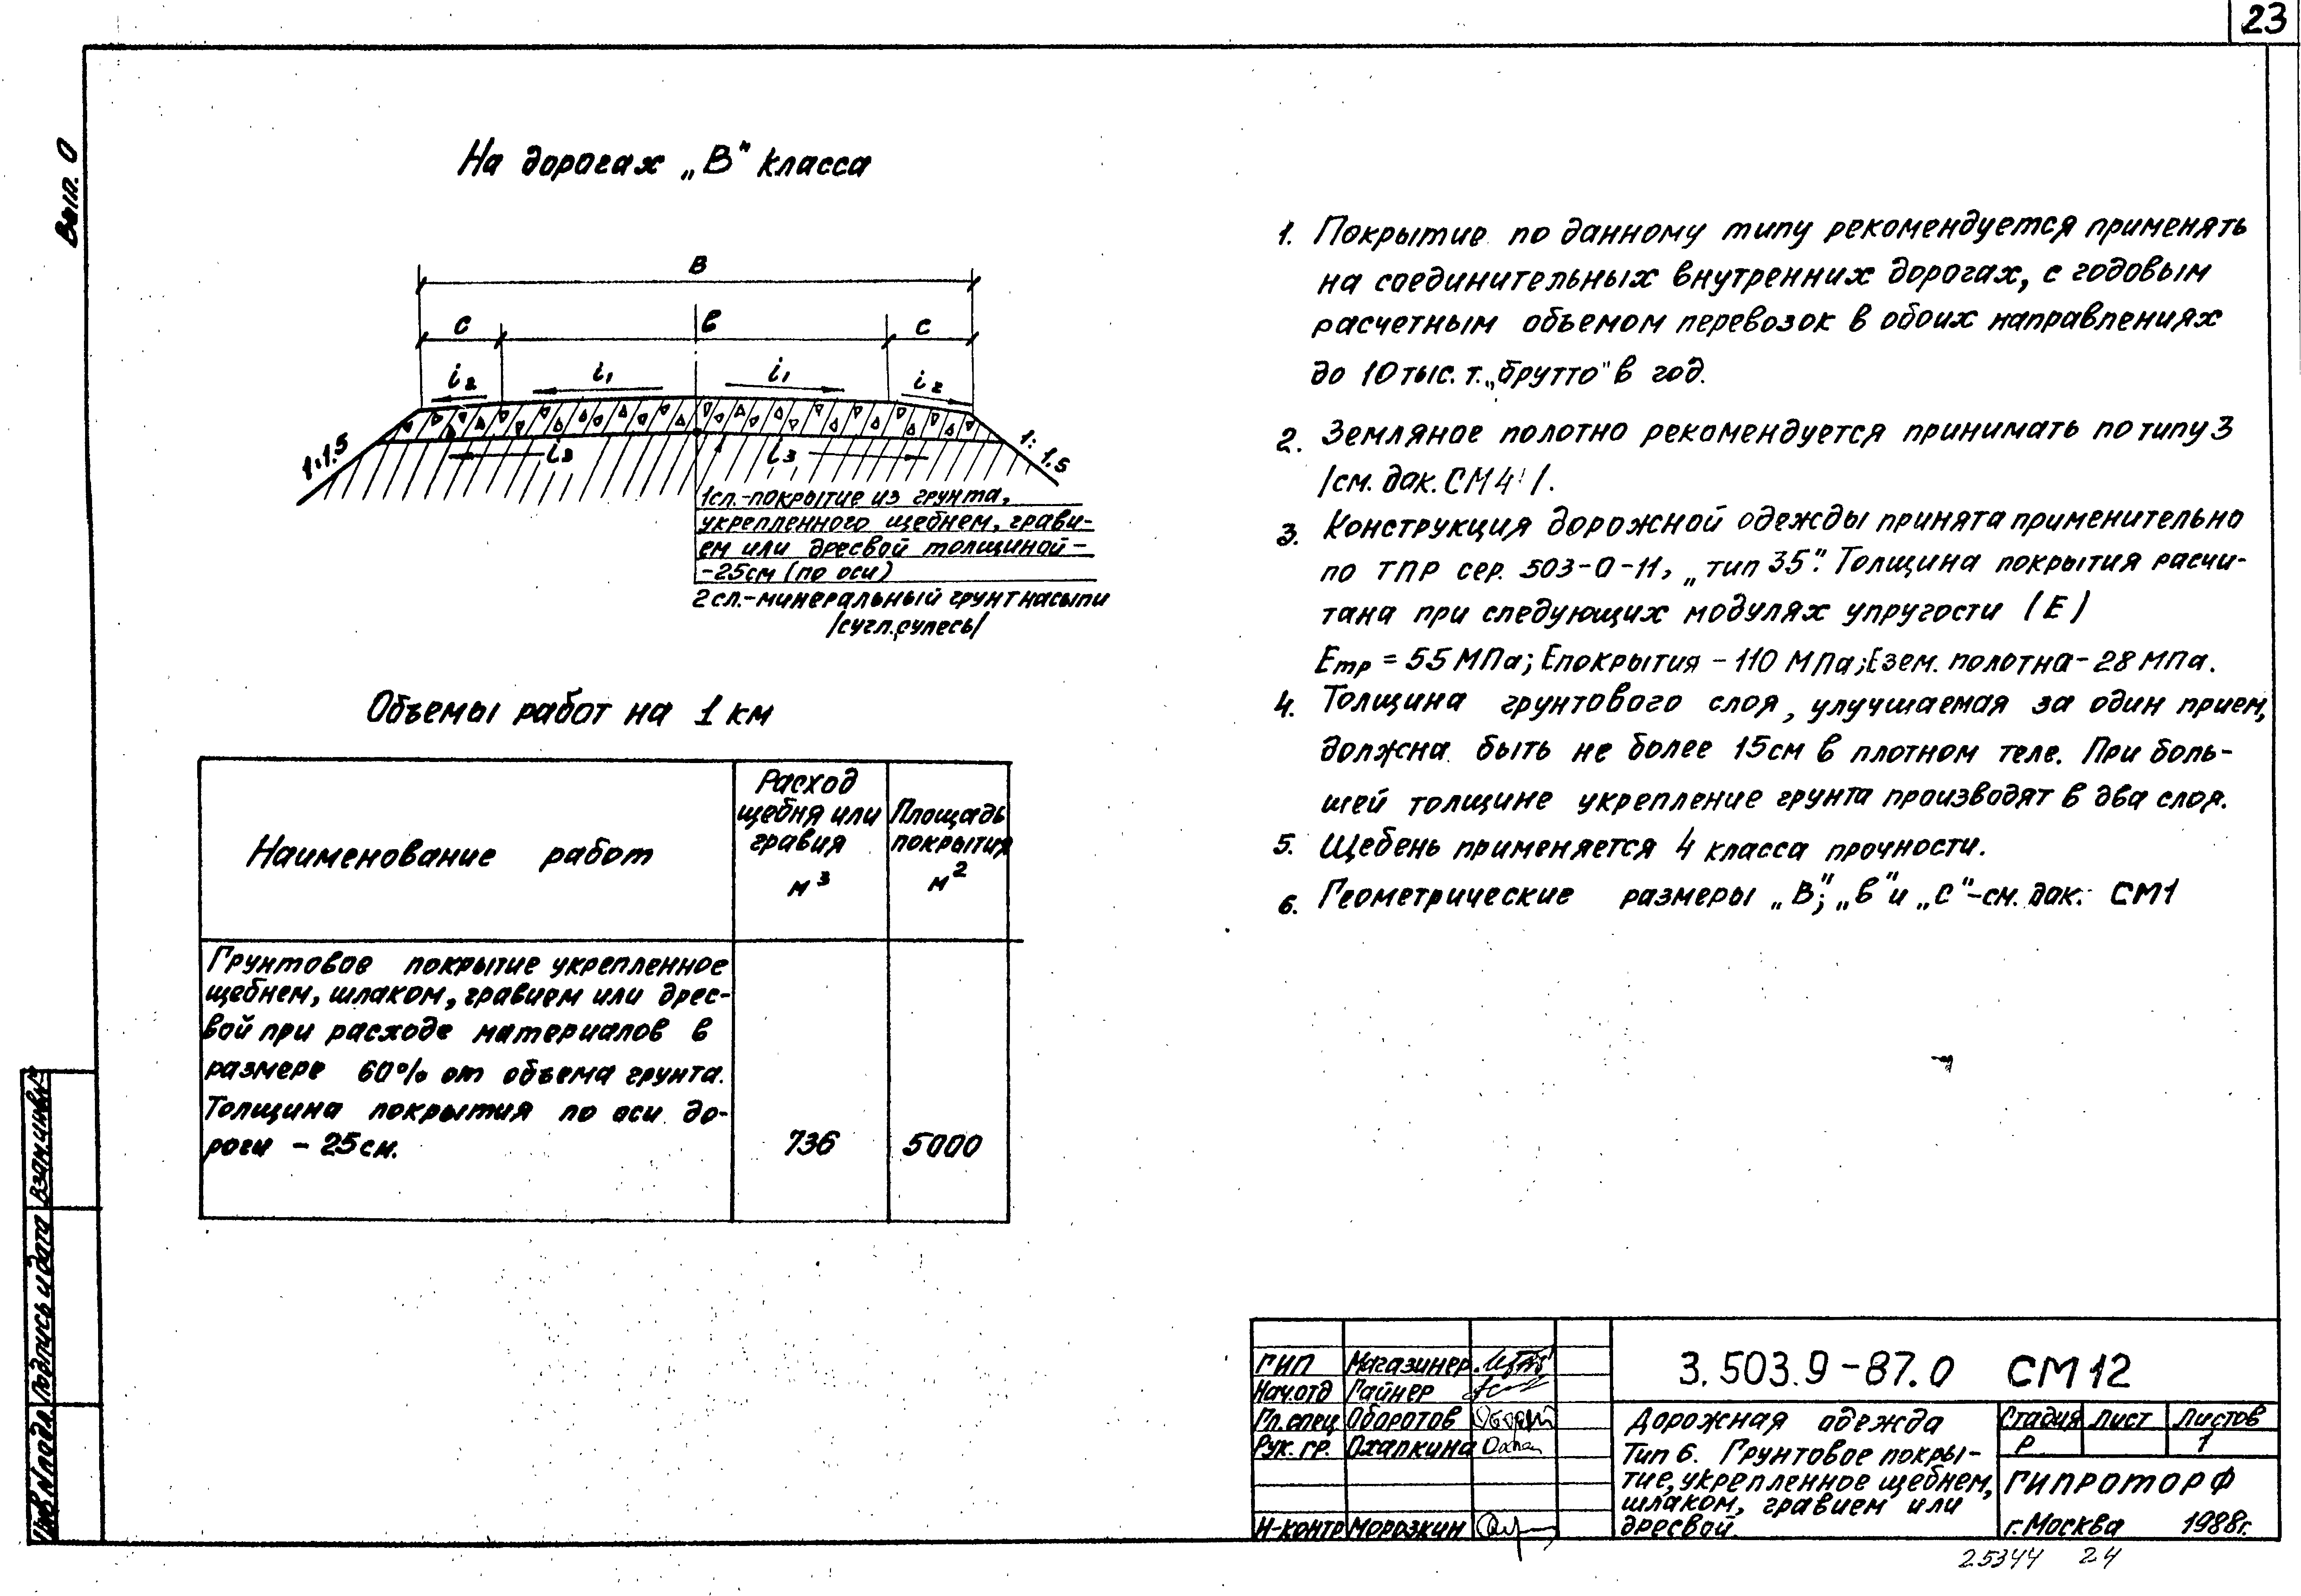 23
Вып. 0
На дорогах „В" класса
В
с в с
i2 i1 i1 i2
1:1.5 i3 i3 1:1.5
1сл.-покрытие из грунта,
укрепленного щебнем, грави-
ем или дресвой толщиной-
-25см (по оси)
2сл.-минеральный грунт насыпи
/сугл.,супесь/
Объемы работ на 1 км
Наименование работ
Расход
щебня или
гравия
м³
Площадь
покрытия
м²
Грунтовое покрытие укрепленное
щебнем, шлаком, гравием или дрес-
вой при расходе материалов в
размере 60% от объема грунта.
Толщина покрытия по оси до-
роги - 25см. 736 5000
1. Покрытие по данному типу рекомендуется применять
на соединительных внутренних дорогах, с годовым
расчетным объемом перевозок в обоих направлениях
до 10 тыс. т. „брутто" в год.
2. Земляное полотно рекомендуется принимать по типу 3
/см. док. СМ4/.
3. Конструкция дорожной одежды принята применительно
по ТПР сер. 503-0-11, „тип 35". Толщина покрытия расчи-
тана при следующих модулях упругости (Е)
Етр = 55 МПа; Епокрытия - 110 МПа; Езем. полотна - 28 МПа.
4. Толщина грунтового слоя, улучшаемая за один прием,
должна быть не более 15см в плотном теле. При боль-
шей толщине укрепление грунта производят в два слоя.
5. Щебень применяется 4 класса прочности.
6. Геометрические размеры „В"; „в" и „с"-см. док. СМ1
Инв. N подл. Подпись и дата Взам.инв.N
ГИП Магазинер
Нач.отд Гайнер
Гл.спец Оборотов
Рук. гр. Охапкина
Н-контр Морозкин
3.503.9-87.0 СМ12
Дорожная одежда
Тип 6. Грунтовое покры-
тие, укрепленное щебнем,
шлаком, гравием или
дресвой.
Стадия Лист Листов
Р 1
ГИПРОТОРФ
г.Москва 1988г.
25344 24